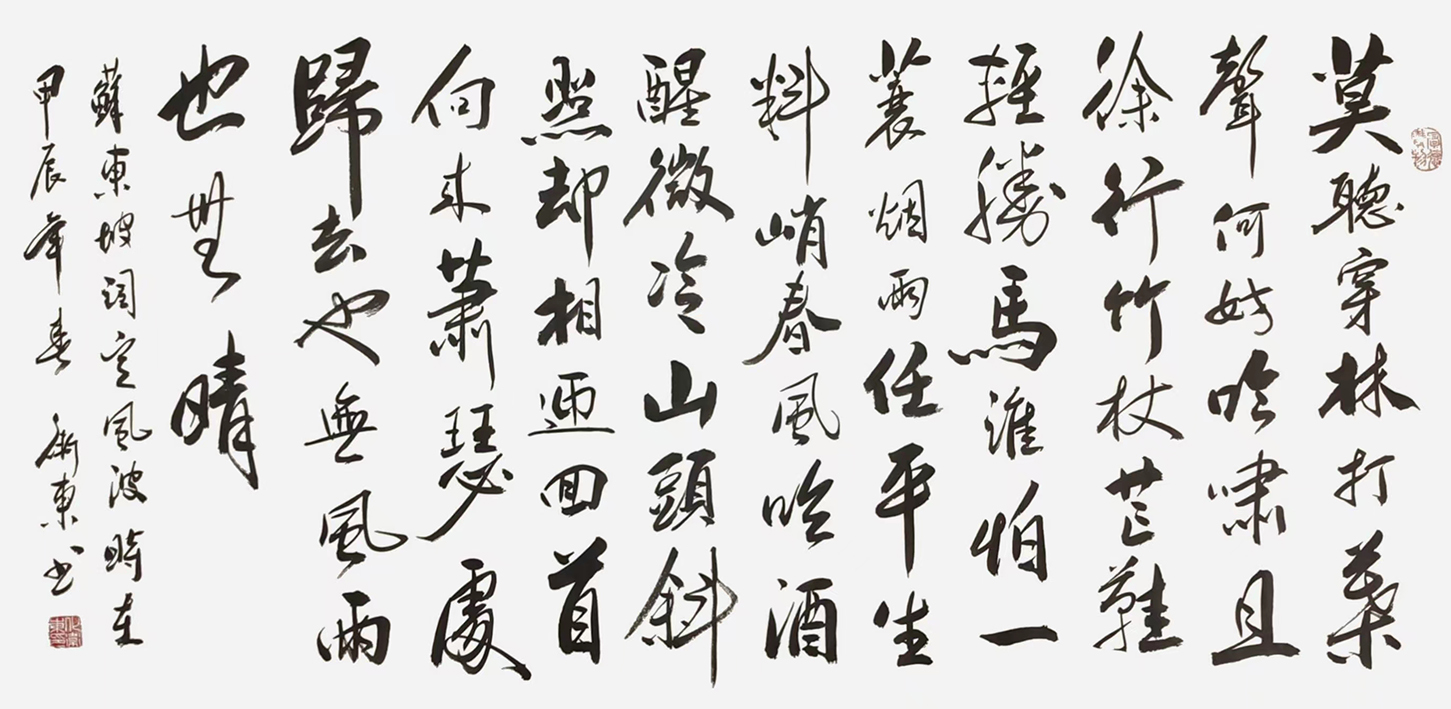 莫聽穿林打葉
聲何妨吟嘯且
徐行竹杖芒鞋
輕勝馬誰怕一
蓑烟雨任平生
料峭春風吹酒
醒微冷山頭斜
照却相迎回首
向来蕭瑟處
歸去也無風雨
也無晴
蘇東坡詞定風波時在
甲辰年春 衛東书